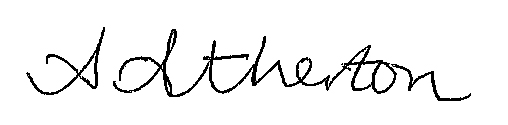 A Atherton